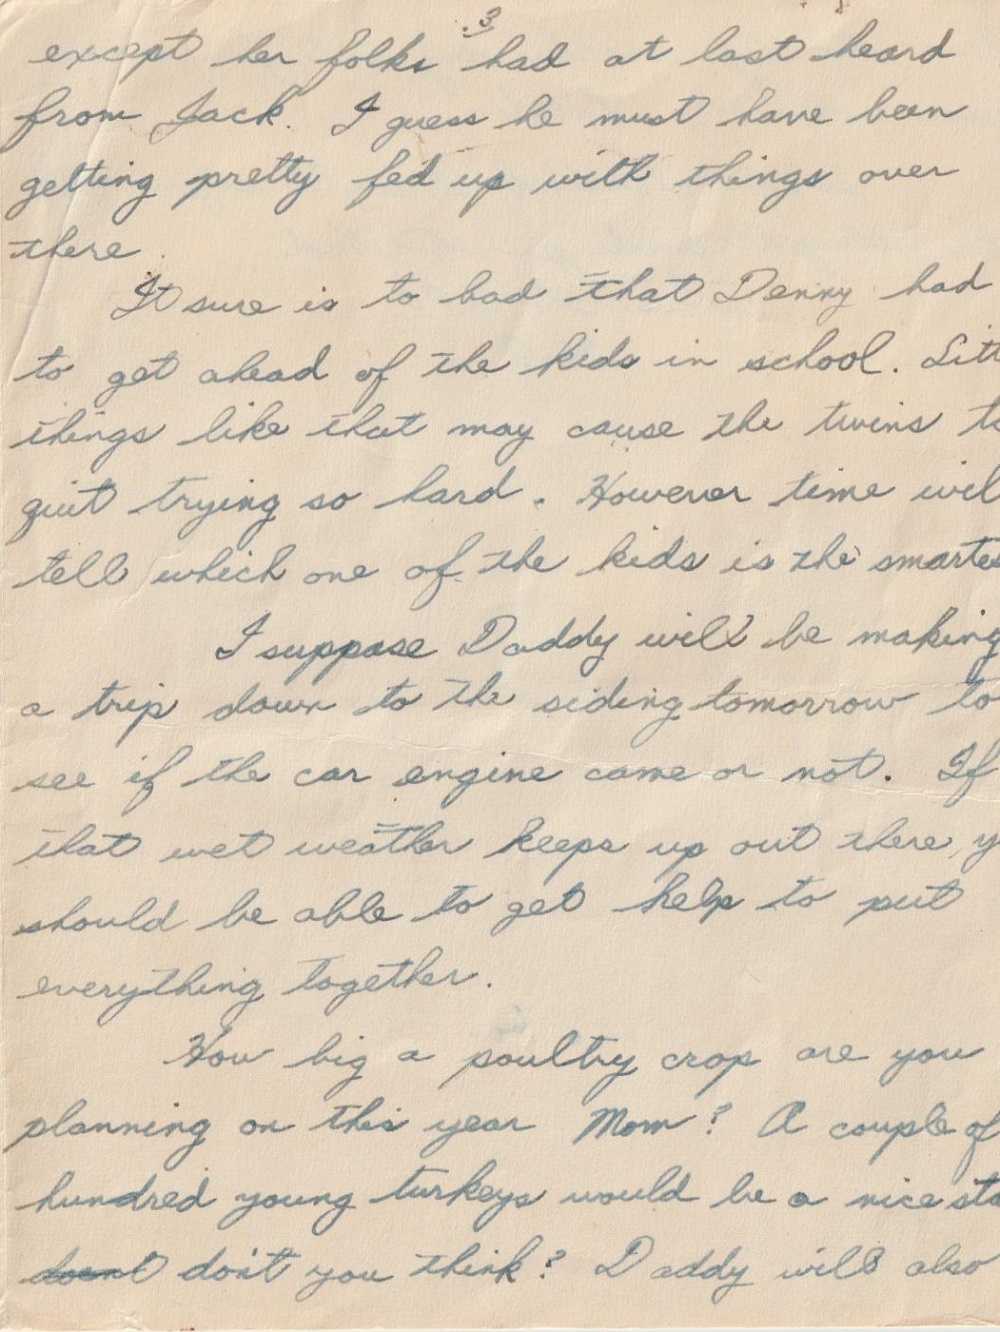 3
except her folks had at last heard
from Jack. I guess he must have been
getting pretty fed up with things over
there.
It sure is to bad that Denny had
to get ahead of the kids in school. Litt
things like that may cause the twins to
quit trying so hard. However time wil
tell which one of the kids is the smartes
I suppose Daddy will be making
a trip down to the siding tomorrow to
see if the car engine came or not. If
that wet weather keeps up out there, y
should be able to get help to put
everything together.
How big a poultry crop are you
planning on this year Mom? A couple of
hundred young turkeys would be a nice sta
don't you think? Daddy will also